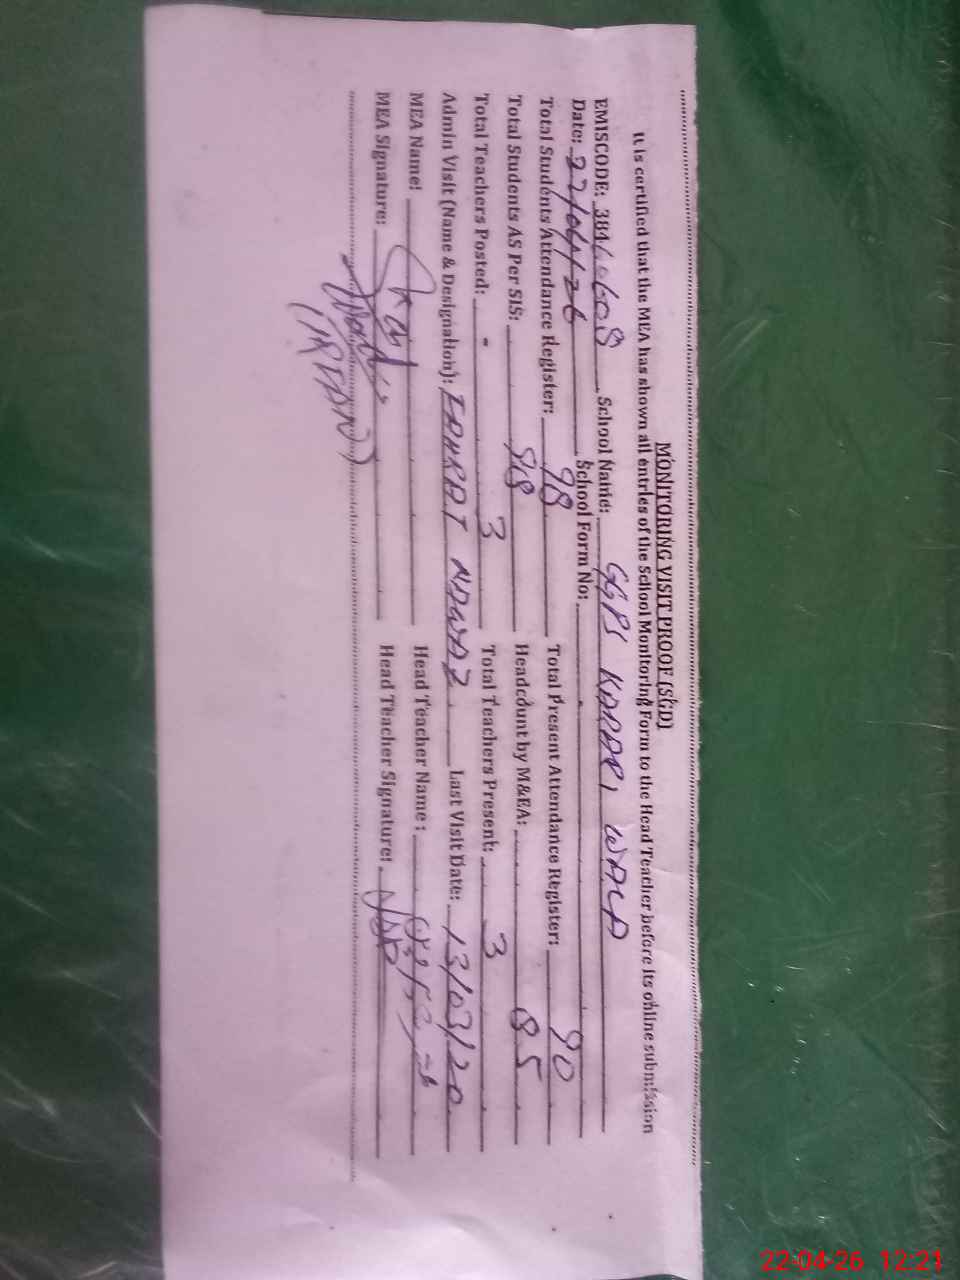 MONITORING VISIT PROOF (SGD)
It is certified that the MEA has shown all entries of the School Monitoring Form to the Head Teacher before its online submission
EMISCODE: School Name: GGPS WALA
Date: 22/04/26 School Form No:
Total Students Attendance Register: 98 Total Present Attendance Register: 90
Total Students AS Per SIS: 98 Headcount by M&EA: 85
Total Teachers Posted: 3 Total Teachers Present: 3
Admin Visit (Name & Designation): NAWAZ Last Visit Date: 13/03/20
MEA Name: Head Teacher Name:
MEA Signature: Head Teacher Signature:
(IRFAN)
22-04-26 12:21